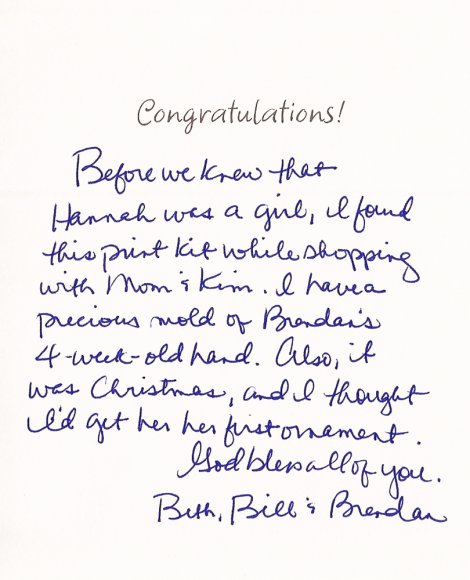 Congratulations!
Before we knew that
Hannah was a girl, I found
this print kit while shopping
with Mom & Kim. I have a
precious mold of Brendan's
4-week-old hand. Also, it
was Christmas, and I thought
I'd get her her first ornament.
God bless all of you.
Beth, Bill & Brendan